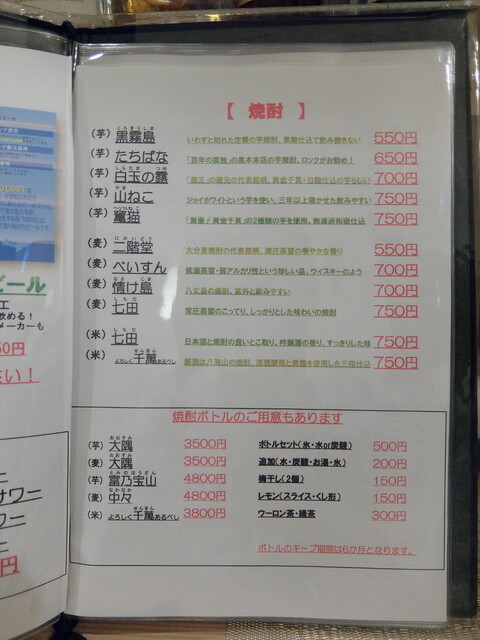 CRAFT
ール
工
飲める！
メーカーも
円
い！
ニ
サワニ
ワニ
ニ
円
【 焼酎 】
(芋) 黒霧島 いわずと知れた定番の芋焼酎、黒麹仕込で飲み飽きない 550円
(芋) たちばな 「百年の孤独」の黒木本店の芋焼酎、ロックがお勧め！ 650円
(芋) 白玉の露 「魔王」の蔵元の代表銘柄、黄金千貫・白麹仕込の芋らしい 700円
(芋) 山ねこ ジョイホワイトという芋を使い、三年以上寝かせた飲みやすい 750円
(芋) 竃猫 「紫優」「黄金千貫」の2種類の芋を使用、無濾過和甕仕込 750円
(麦) 二階堂 大分麦焼酎の代表銘柄、減圧蒸留の華やかな香り 550円
(麦) ぺいすん 低温蒸留・弱アルカリ性という珍しい品、ウイスキーのよう 700円
(麦) 情け島 八丈島の麦焼、意外と飲みやすい 700円
(麦) 七田 常圧蒸留のこってり、しっかりとした味わいの焼酎 750円
(米) 七田 日本酒と焼酎の良いとこ取り、吟醸酒の香り、すっきりした味 750円
(米) よろしく千萬あるべし 蔵元は八海山の焼酎、清酒酵母と黄麹を使用した三段仕込 750円
焼酎ボトルのご用意もあります
(芋) 大隅 3500円 ボトルセット(氷・水or炭酸) 500円
(麦) 大隅 3500円 追加(水・炭酸・お湯・氷) 200円
(芋) 富乃宝山 4800円 梅干し(2個) 150円
(麦) 中々 4800円 レモン(スライス・くし形) 150円
(米) よろしく千萬あるべし 3800円 ウーロン茶・緑茶 300円
ボトルのキープ期間は6か月となります。